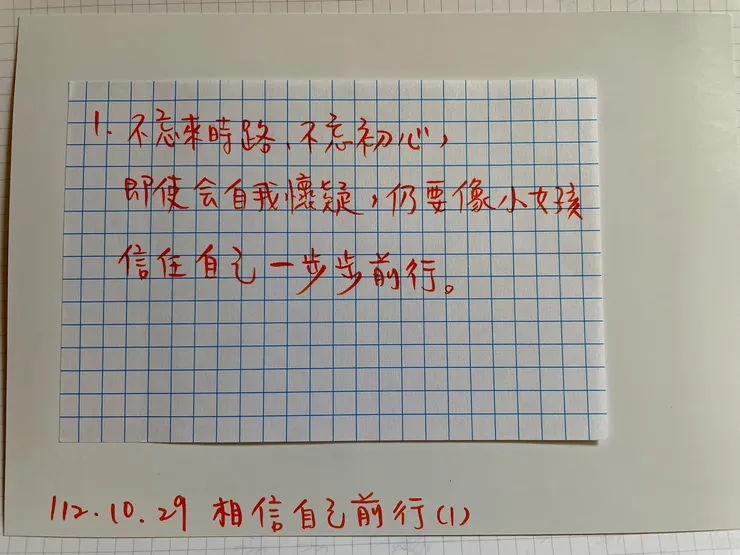 1. 不忘來時路、不忘初心,
即使会自我懷疑,仍要像小女孩
信任自己一步步前行。
112.10.29 相信自己前行(1)